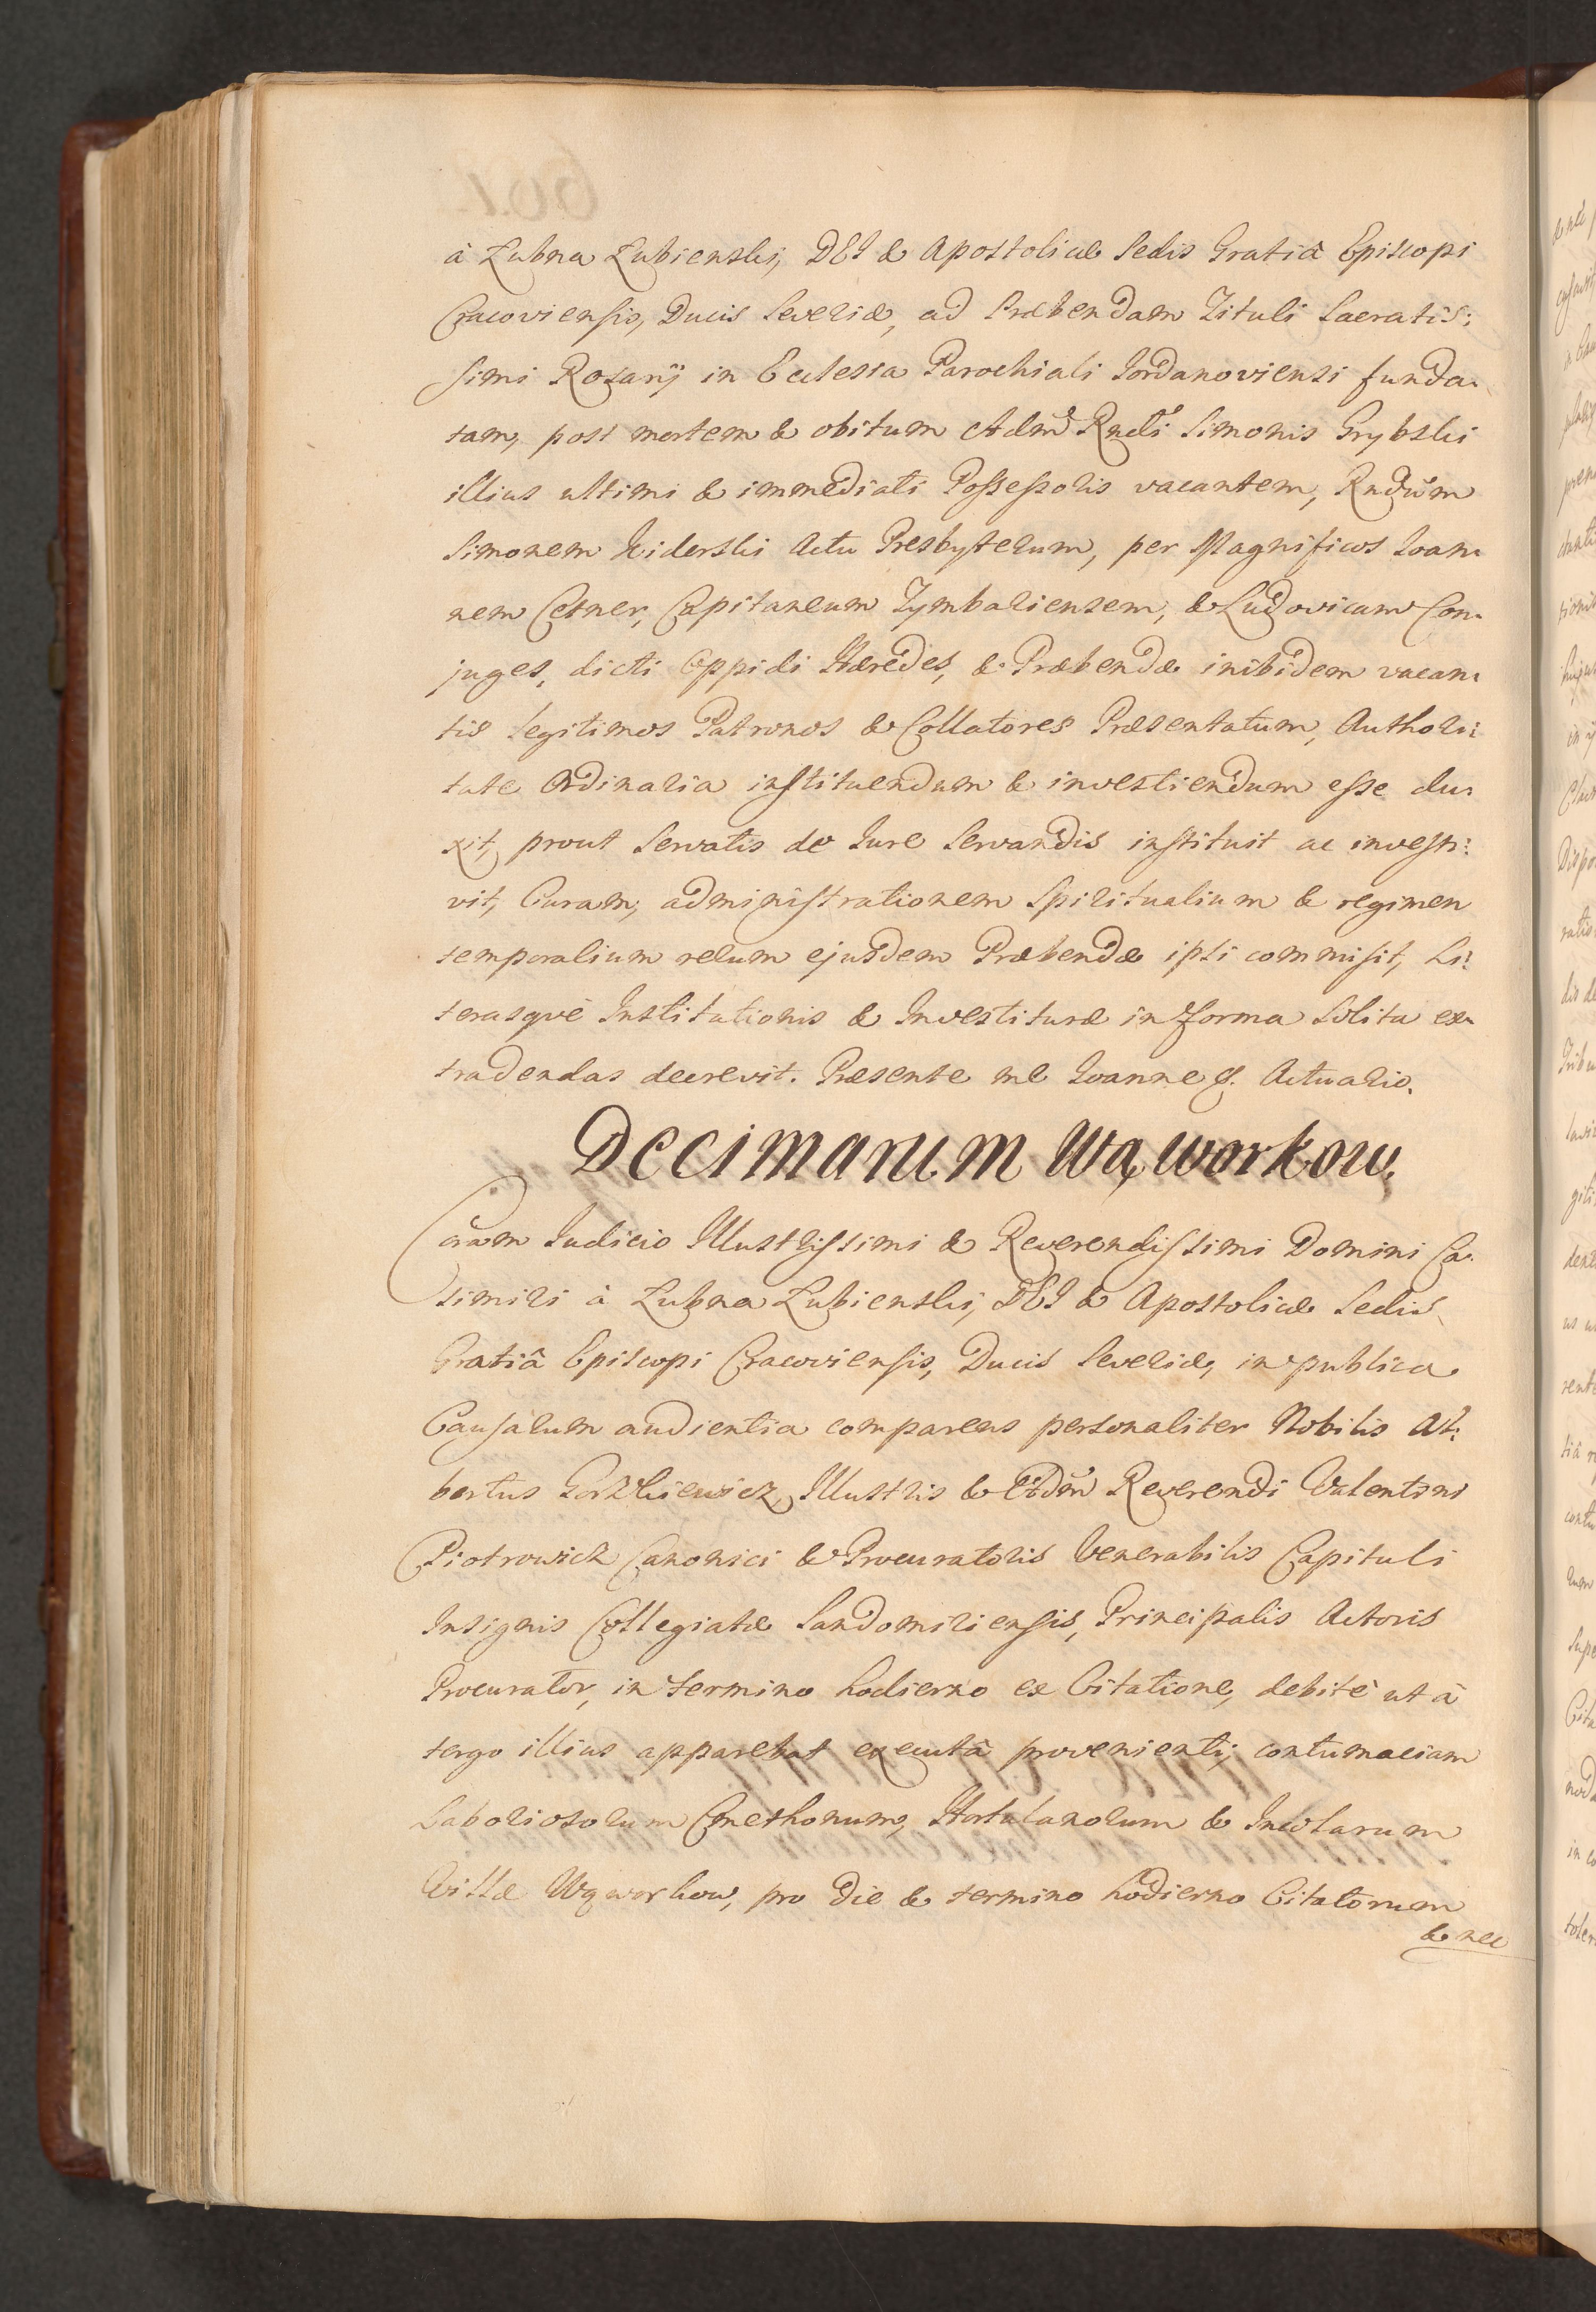 à Łubna Łubienski, DEI & Apostolicæ Sedis Gratiâ Episcopi
Cracoviensis, Ducis Severiæ, ad Præbendam Tituli Sacratis:
simi Rosarij in Ecclesia Parochiali Jordanoviensi funda:
tam, post mortem & obitum Adm Rndi Simonis Grybski
illius ultimi & immediati Possessoris vacantem, Rndum
Simonem Kiderski Actu Presbyterum, per Magnificos Joan:
nem Cetner, Capitaneum Tymbariensem, & Ludovicam Con:
juges, dicti Oppidi Hæredes, & Præbendæ inibidem vacan:
tis legitimos Patronos & Collatores Præsentatum, Authori:
tate Ordinaria instituendum & investiendum esse du:
xit, prout servatis de Jure servandis instituit ac investi:
vit, Curam, administrationem Spiritualium & regimen
temporalium rerum ejusdem Præbendæ ipsi commisit, Li:
terasque Institutionis & Investituræ in forma solita ex:
tradendas decrevit. Præsente me Joanne G. Actuario.
Decimarum Wąworkow.
Coram Judicio Illustrissimi & Reverendissimi Domini Ca:
simiri à Łubna Łubienski, DEI & Apostolicæ Sedis
Gratiâ Episcopi Cracoviensis, Ducis Severiæ, in publica
Causarum audientia comparens personaliter Nobilis Al:
bertus Illustris & Adm Reverendi Valentini
Piotrowicz Canonici & Procuratoris Venerabilis Capituli
Insignis Collegiatæ Sandomiriensis, Principalis Actoris
Procurator, in termino hodierno ex Citatione, debitè ut à
tergo illius apparebat executâ provenienti, contumaciam
Laboriosorum Cmethonum, Hortulanorum & Incolarum
Villæ Wąworkow, pro die & termino hodierno Citatorum
& nec